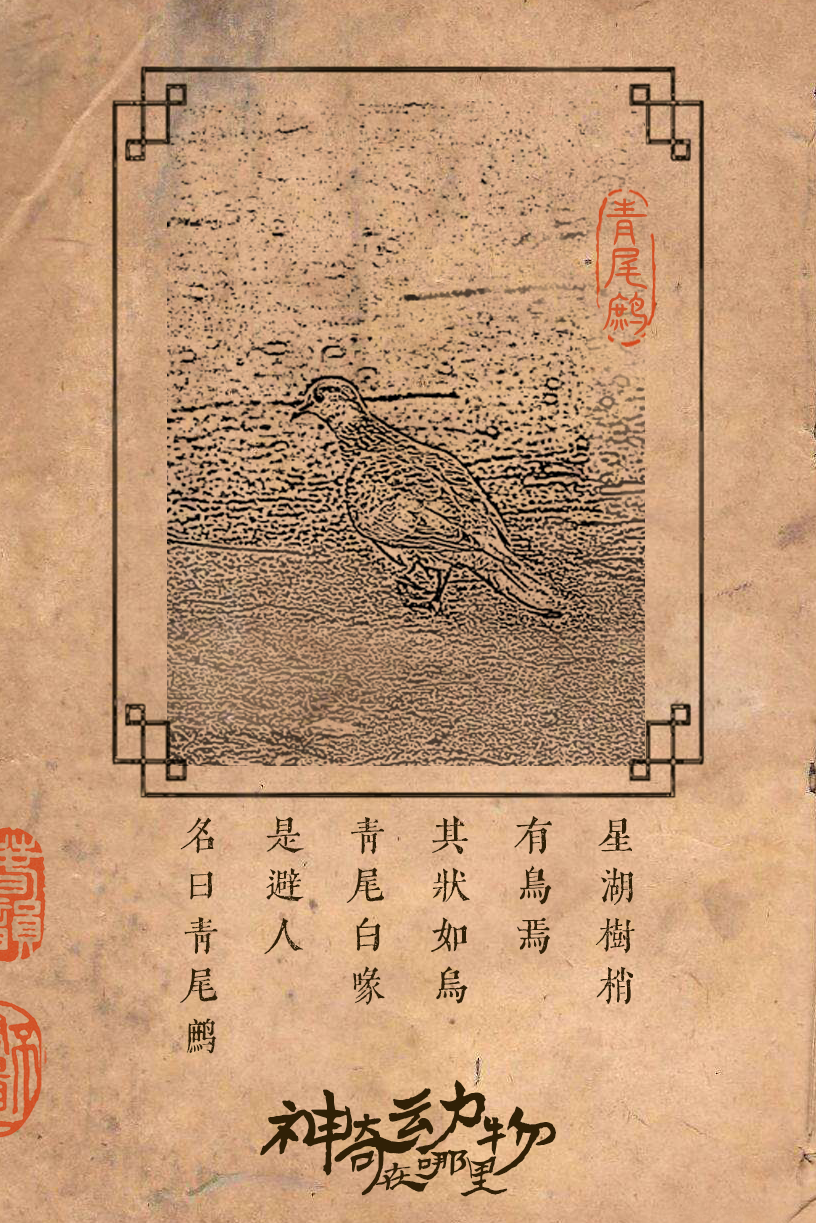 青尾鹧
星湖樹梢
有鳥焉
其狀如烏
青尾白喙
是避人
名曰青尾鹧
神奇动物
在哪里